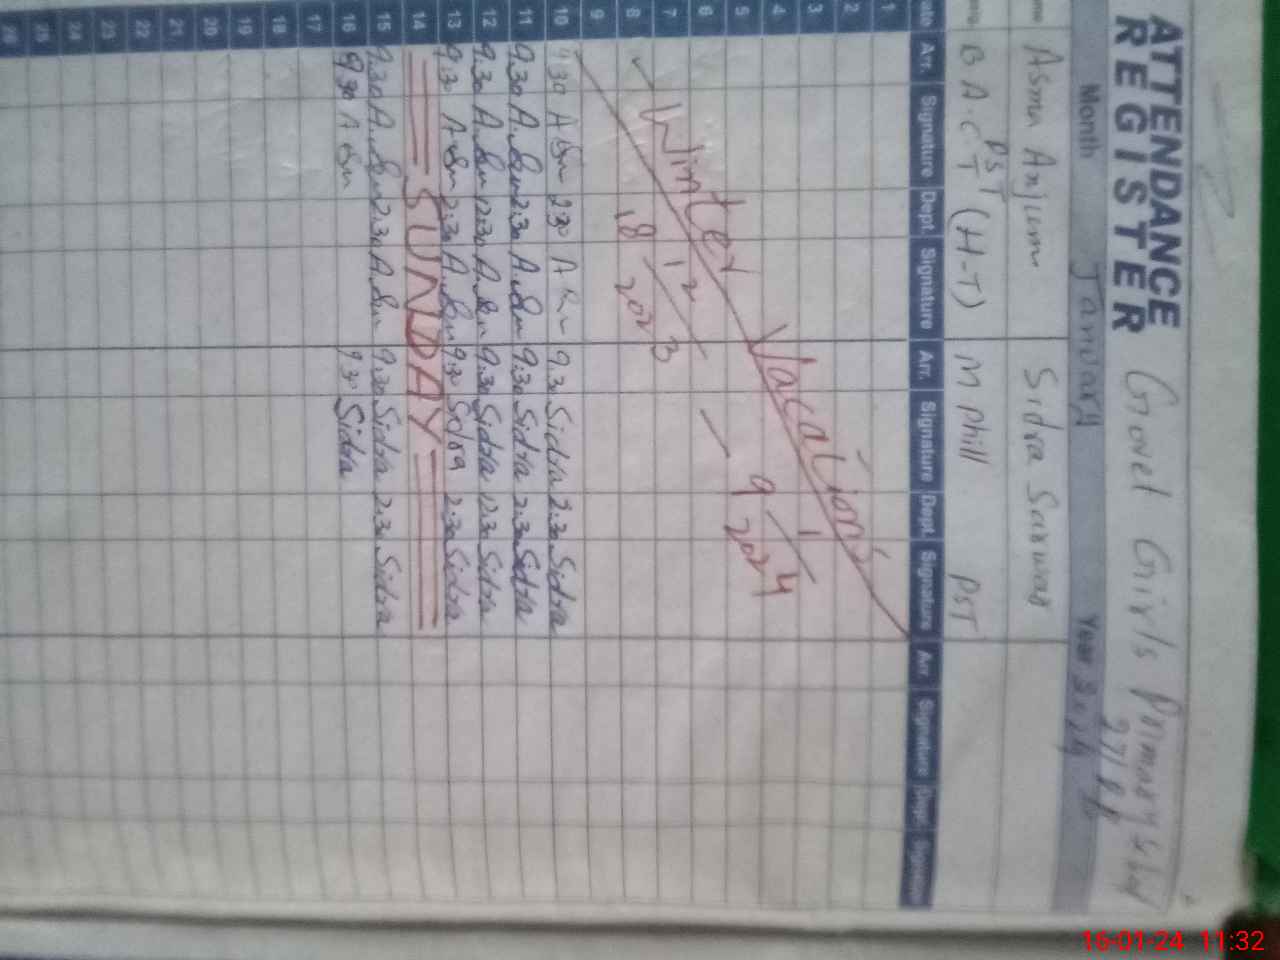 ATTENDANCE
REGISTER
Govet Girls Primary School
Month January Year 2024
Asma Anjum Sidra Sarwar
PST
B A.C T (H-T) M phill PST
Arr. Signature Dept. Signature Arr. Signature Dept. Signature Arr. Signature Dept. Signature
1
2
3
4
5
6
7
8
9
Winter Vacations
18/12/2023 — 9/1/2024
10 9.30 2.30 9.30 Sidra 2.30 Sidra
11 9.30 2.30 9.30 Sidra 2.30 Sidra
12 9.30 12.30 9.30 Sidra 12.30 Sidra
13 9.30 2.30 9.30 Sidra 2.30 Sidra
14 SUNDAY
15 9.30 2.30 9.30 Sidra 2.30 Sidra
16 9.30 9.30 Sidra
17
18
19
20
21
22
23
24
25
26
16-01-24 11:32